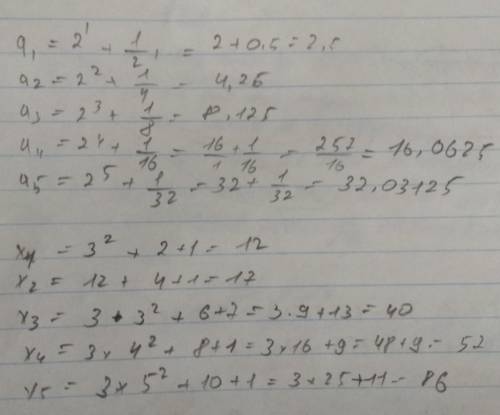 a₁ = 2¹ + 1/2¹ = 2 + 0.5 = 2,5
a₂ = 2² + 1/4 = 4,25
a₃ = 2³ + 1/8 = 8,125
a₄ = 2⁴ + 1/16 = 16/1 + 1/16 = 257/16 = 16,0625
a₅ = 2⁵ + 1/32 = 32 + 1/32 = 32,03125
x₁ = 3² + 2 + 1 = 12
x₂ = 12 + 4 + 1 = 17
x₃ = 3 * 3² + 6 + 7 = 3.9 + 13 = 40
x₄ = 3 x 4² + 8 + 1 = 3 x 16 + 9 = 48 + 9 = 57
x₅ = 3 x 5² + 10 + 1 = 3 x 25 + 11 = 86